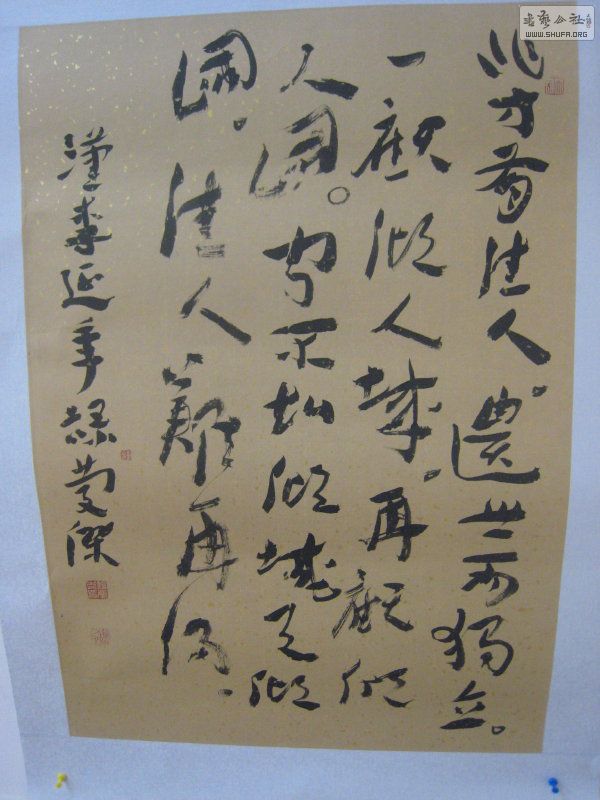 書藝公社
WWW.SHUFA.ORG
北方有佳人。遺世而獨立。
一顧傾人城。再顧傾
人國。寧不知傾城與傾
國。佳人難再得。
漢李延年